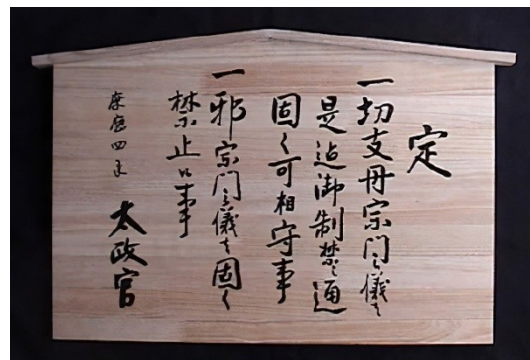 定
一切支丹宗門之儀は
是迄御制禁之通
固く可相守事
一邪宗門之儀は固く
禁止候事
慶應四年 太政官